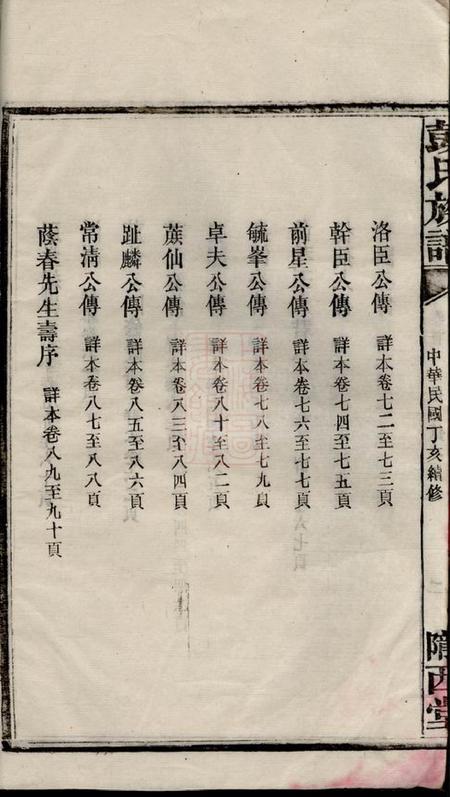 彭氏族譜
中華民國丁亥續修
隴西堂
洛臣公傳 詳本卷七二至七三頁
幹臣公傳 詳本卷七四至七五頁
前星公傳 詳本卷七六至七七頁
毓峯公傳 詳本卷七八至七九頁
卓夫公傳 詳本卷八十至八二頁
蔟仙公傳 詳本卷八三至八四頁
趾麟公傳 詳本卷八五至八六頁
常淸公傳 詳本卷八七至八八頁
蔭春先生壽序 詳本卷八九至九十頁